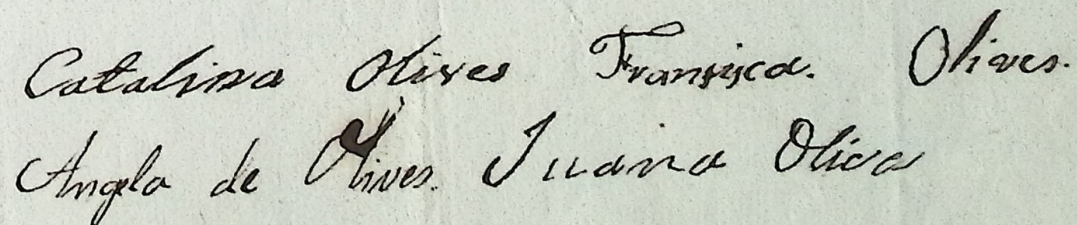 Catalina Olives Fransisca. Olives.
Angela de Olives. Juana Olives